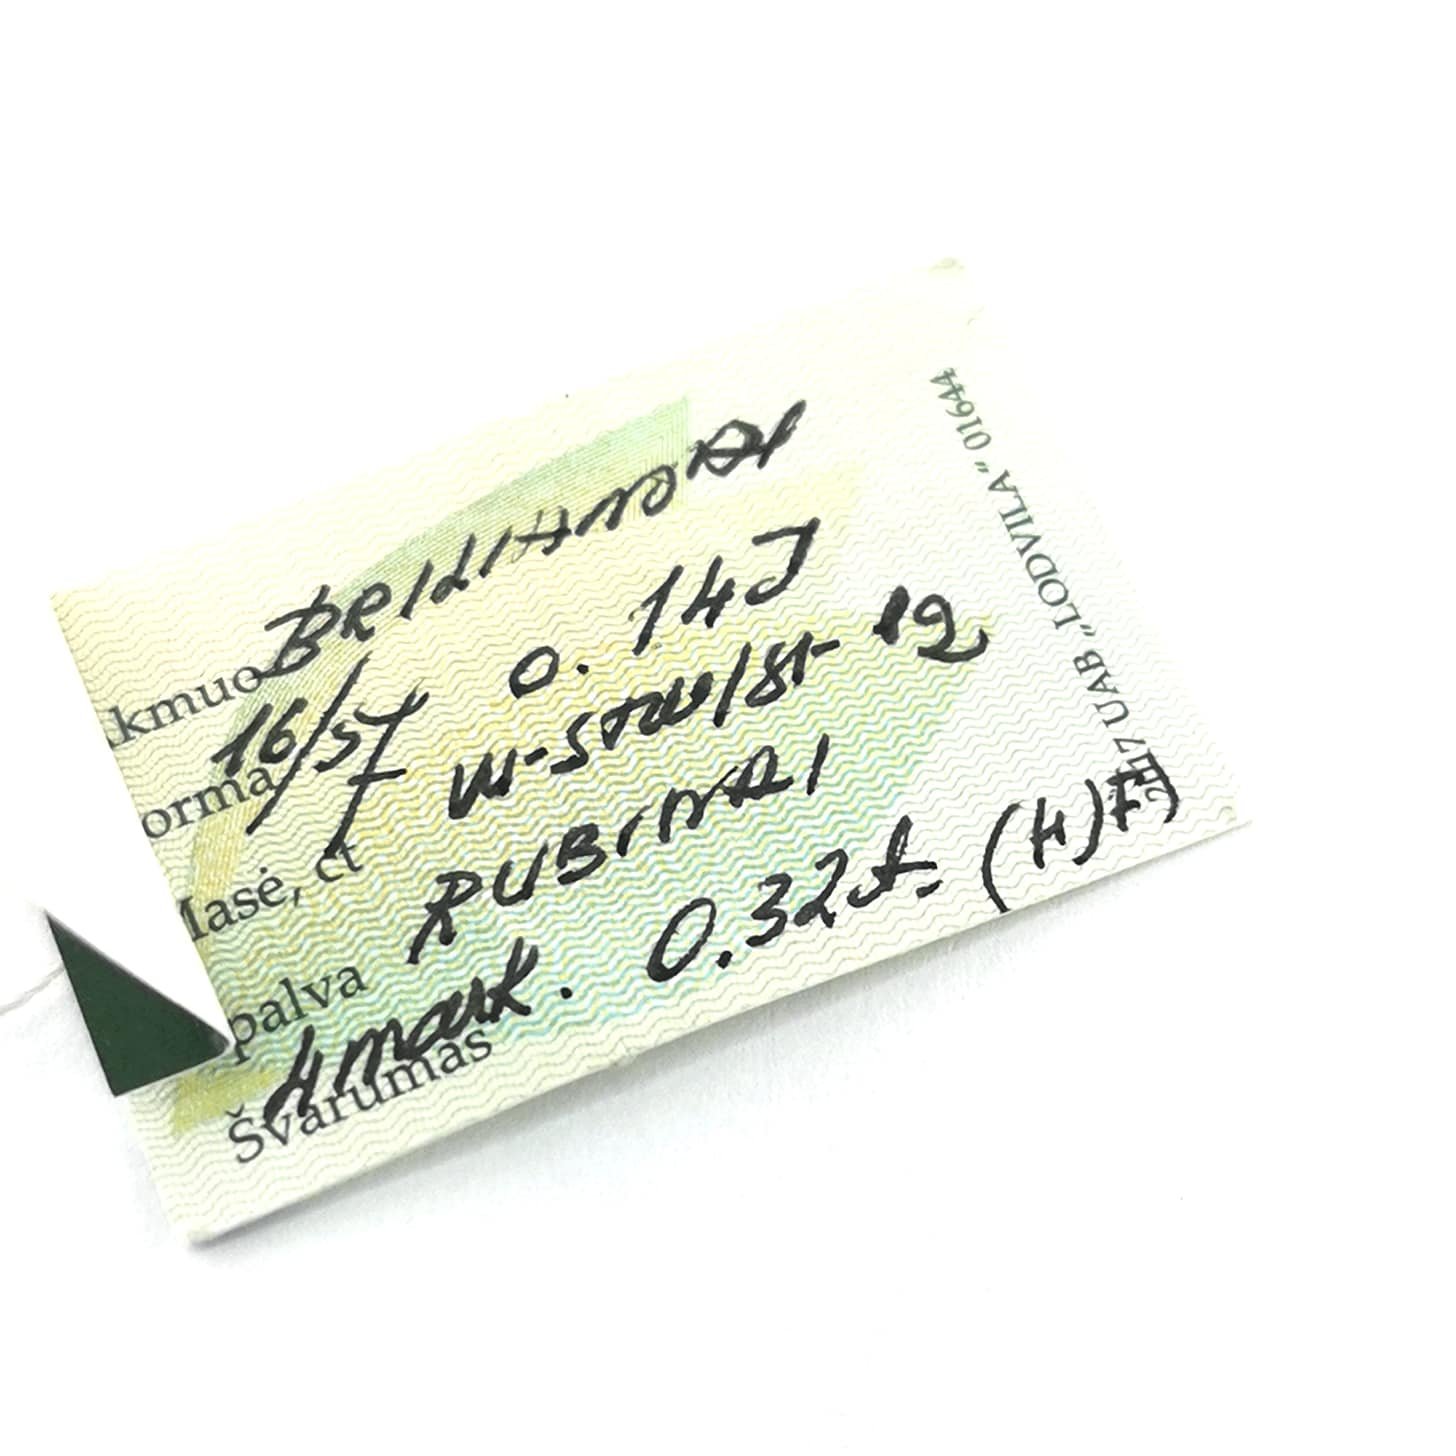 kmuo BRILIANTAI
orma 16/57 0.14J
Masė, ct W-STW/S1- 12
palva RUBINAI
Švarumas 4 mark. 0.32ct. (H)
2017 UAB „LODVILA“ 01644